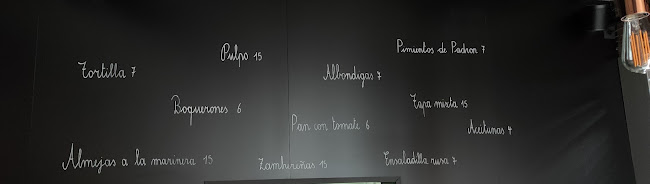 Pimientos de Padron 7
Pulpo 15
Tortilla 7
Albondigas 7
Boquerones 6
Tapa mixta 15
Pan con tomate 6
Aceitunas 4
Almejas a la marinera 15
Zamburiñas 15
Ensaladilla rusa 7